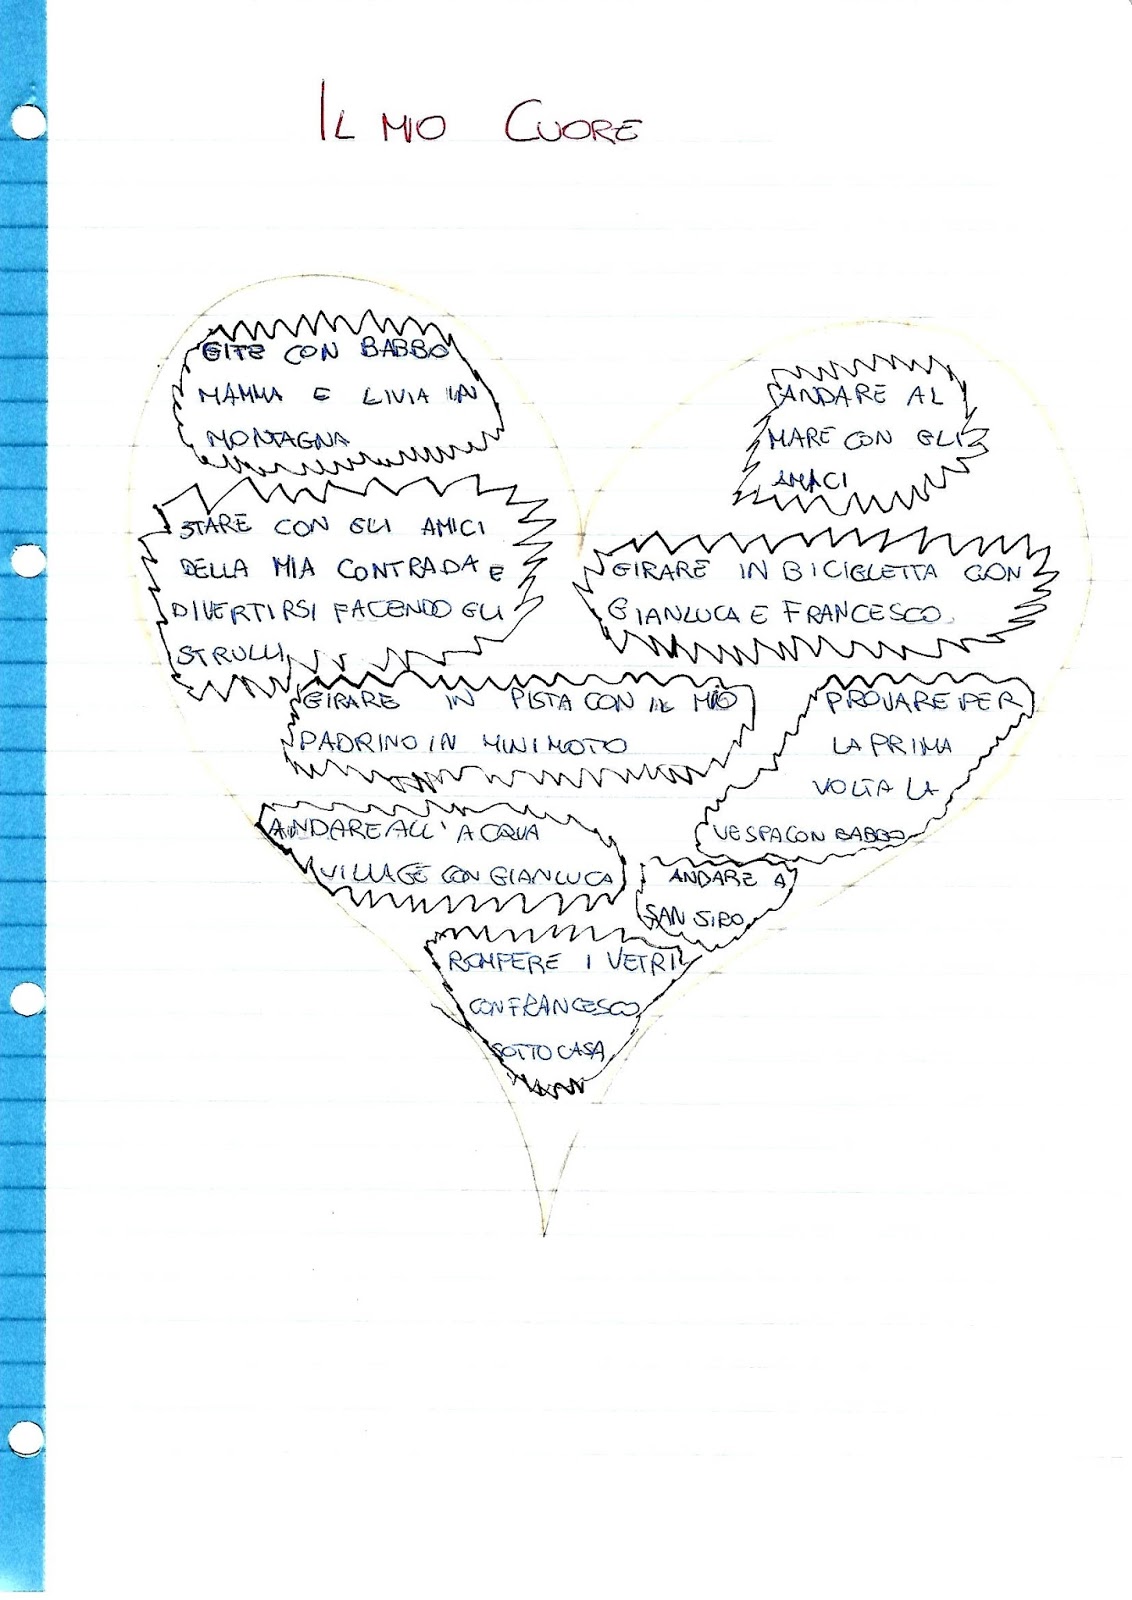 IL MIO CUORE
GITE CON BABBO
MAMMA E LIVIA IN
MONTAGNA
ANDARE AL
MARE CON GLI
AMICI
STARE CON GLI AMICI
DELLA MIA CONTRADA E
DIVERTIRSI FACENDO GLI
STRULLI
GIRARE IN BICICLETTA CON
GIANLUCA E FRANCESCO.
GIRARE IN PISTA CON IL MIO
PADRINO IN MINIMOTO
PROVARE PER
LA PRIMA
VOLTA LA
VESPA CON BABBO
ANDARE ALL'ACQUA
VILLAGE CON GIANLUCA
ANDARE A
SAN SIRO
ROMPERE I VETRI
CON FRANCESCO
SOTTO CASA